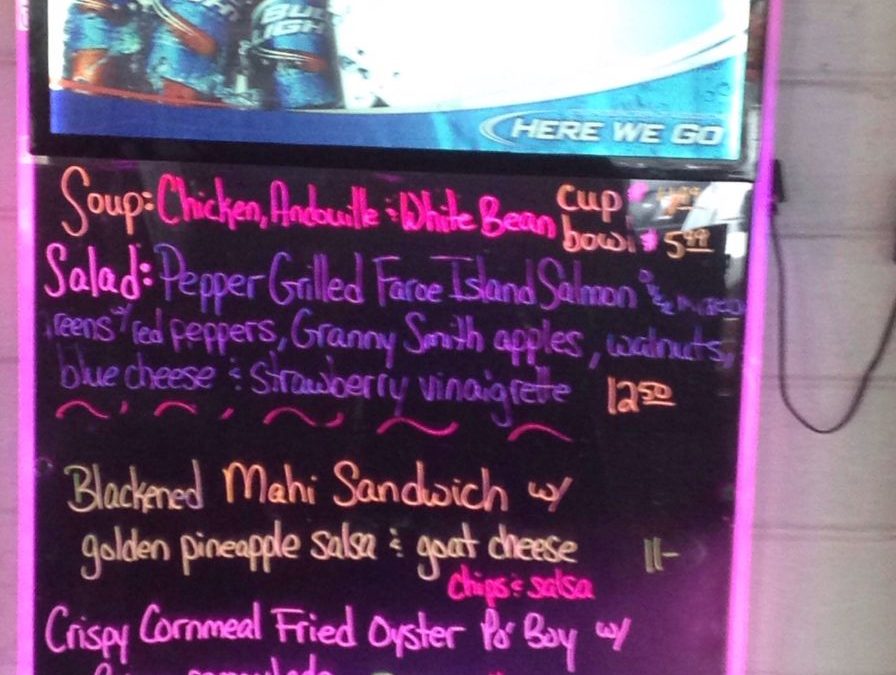 BUD LIGHT
HERE WE GO
Soup: Chicken, Andouille & White Bean cup
bowl $ 5.99
Salad: Pepper Grilled Faroe Island Salmon
red peppers, Granny Smith apples, walnuts,
blue cheese & strawberry vinaigrette 12.50
Blackened Mahi Sandwich w/
golden pineapple salsa & goat cheese 11-
chips & salsa
Crispy Cornmeal Fried Oyster Po' Boy w/